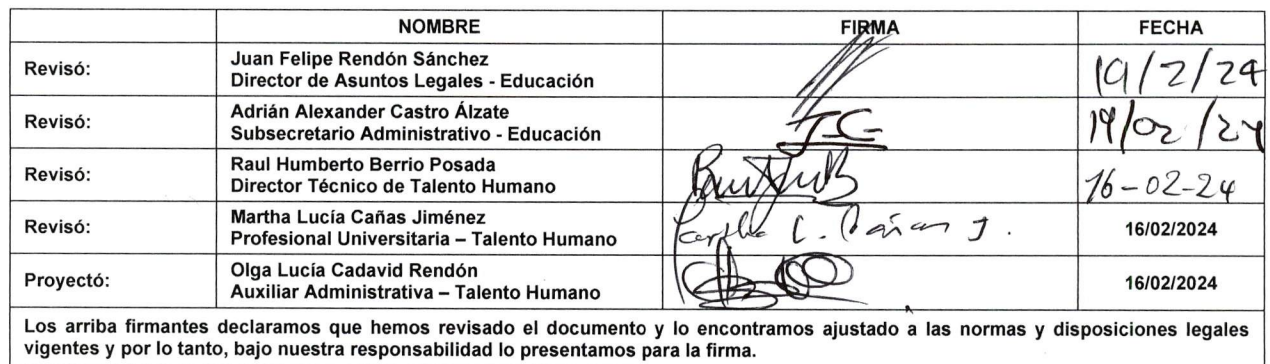 NOMBRE FIRMA FECHA
Revisó: Juan Felipe Rendón Sánchez
Director de Asuntos Legales - Educación 19/2/24
Revisó: Adrián Alexander Castro Álzate
Subsecretario Administrativo - Educación 19/02/24
Revisó: Raul Humberto Berrio Posada
Director Técnico de Talento Humano 16-02-24
Revisó: Martha Lucía Cañas Jiménez
Profesional Universitaria – Talento Humano L. Cañas J. 16/02/2024
Proyectó: Olga Lucía Cadavid Rendón
Auxiliar Administrativa – Talento Humano 16/02/2024
Los arriba firmantes declaramos que hemos revisado el documento y lo encontramos ajustado a las normas y disposiciones legales
vigentes y por lo tanto, bajo nuestra responsabilidad lo presentamos para la firma.